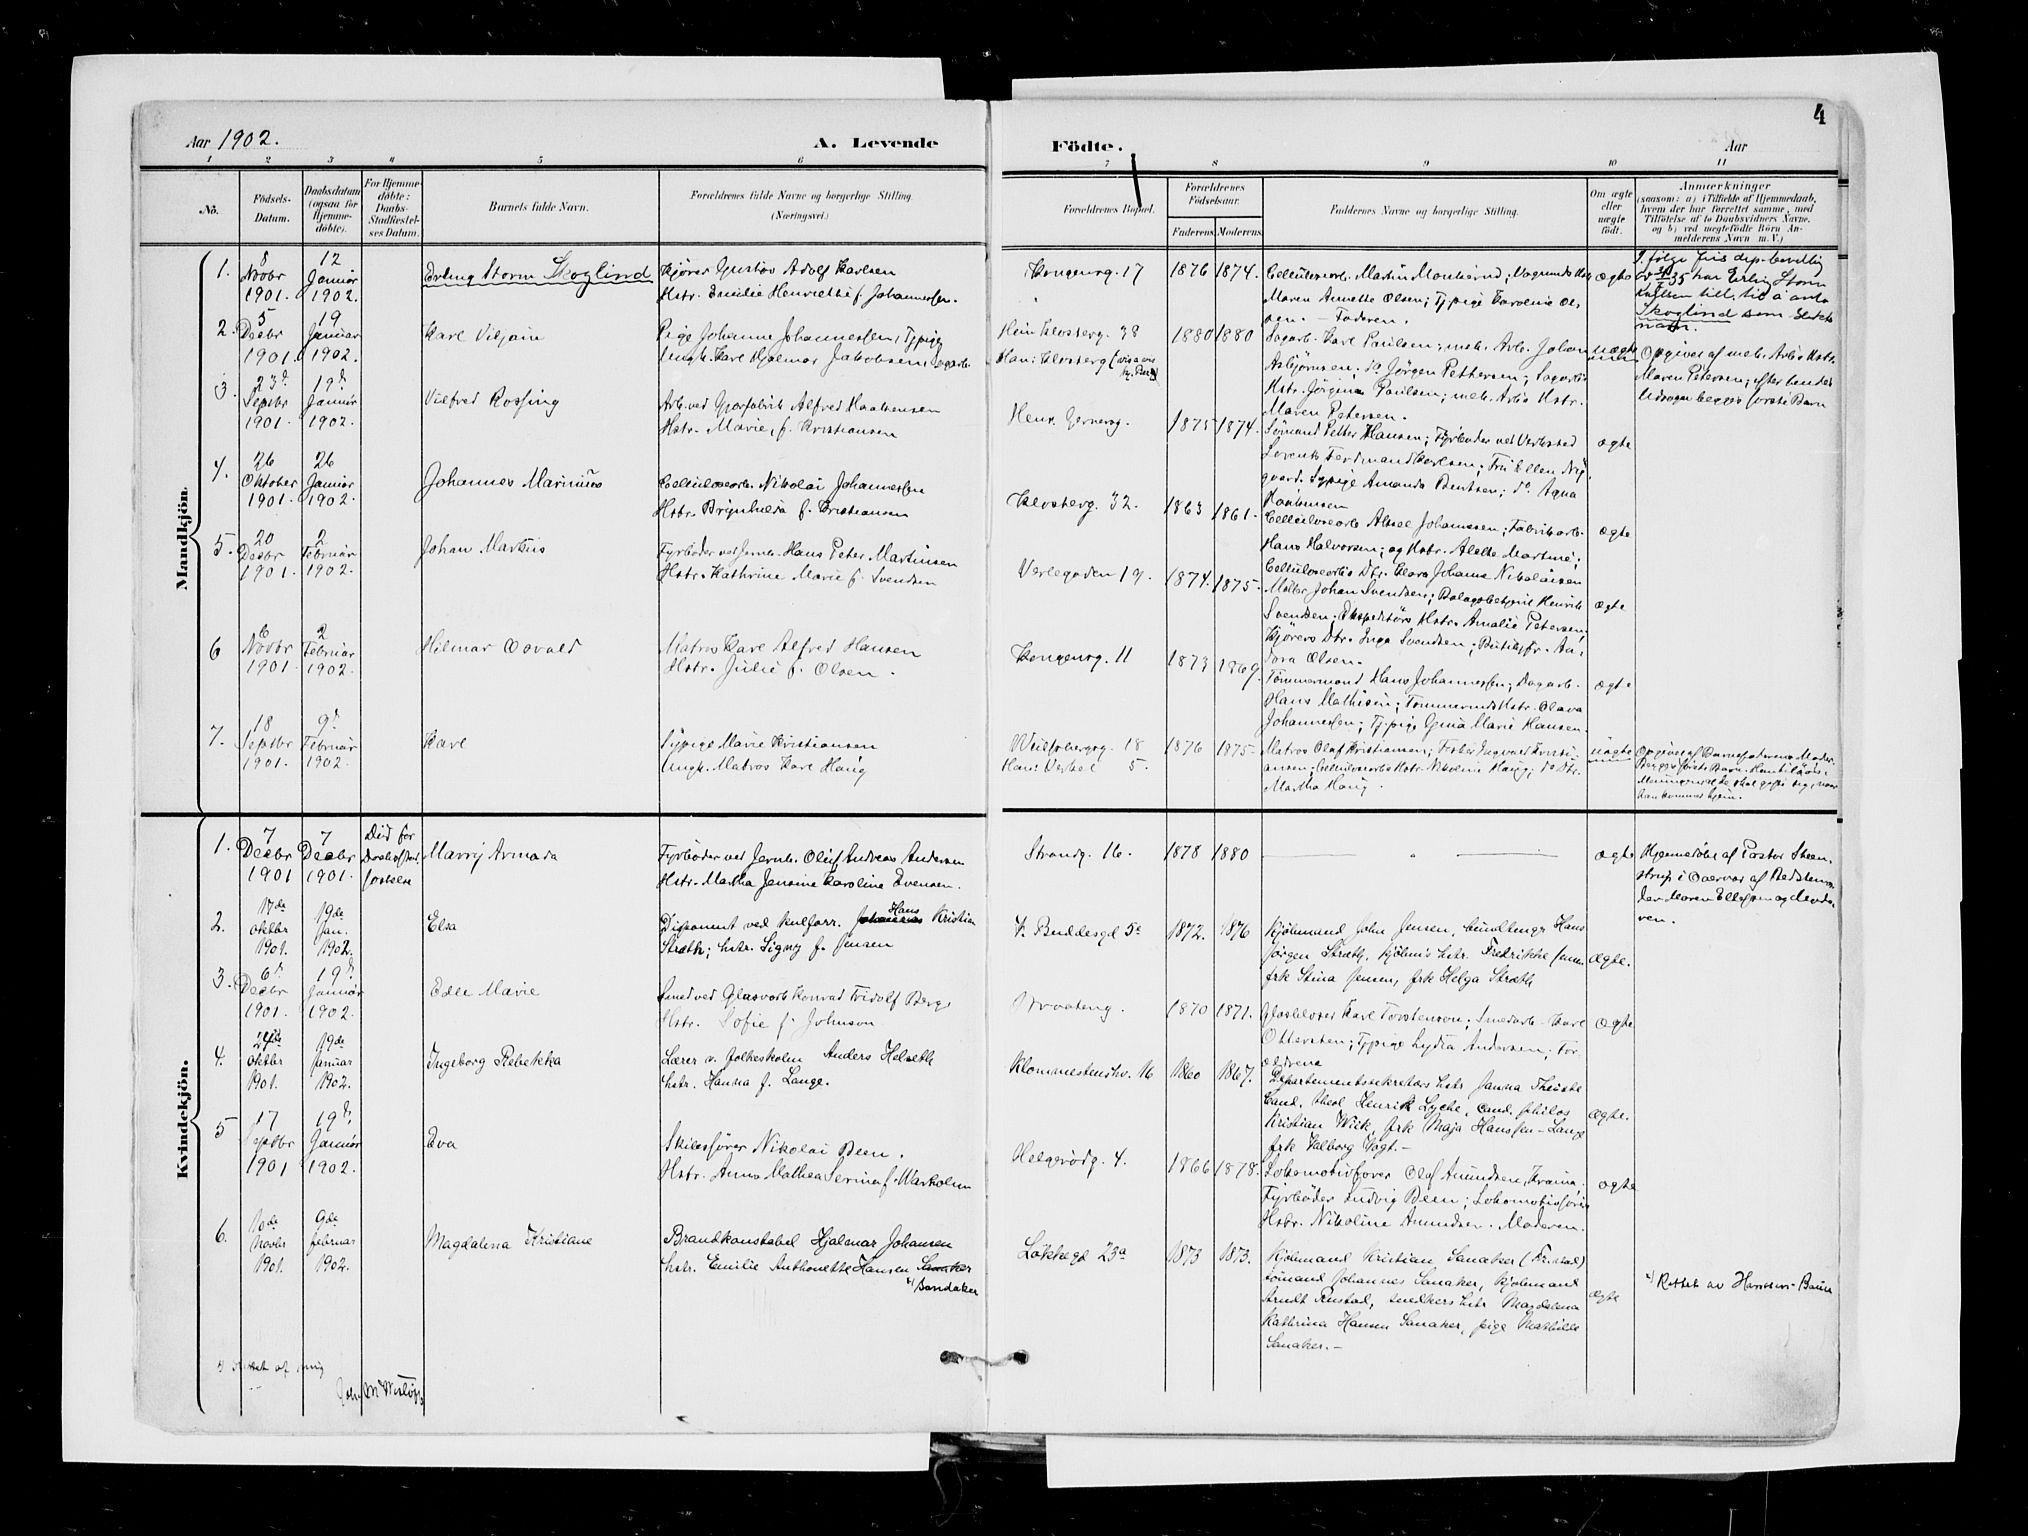 4
Aar 1902.
A. Levende
Födte.
Aar
1 2 3 4 5 6 7 8 9 10 11
No.
Födsels-
Datum.
Daabsdatum
(ogsaa for
Hjemme-
döbte).
For Hjemme-
döbte:
Daabs-
Stadfæstel-
ses Datum.
Barnets fulde Navn.
Forældrenes fulde Navne og borgerlige Stilling.
(Næringsvei.)
Forældrenes Bopæl.
Forældrenes
Födselsaar.
Faderens. Moderens.
Faddernes Navne og borgerlige Stilling.
Om ægte
eller
uægte
födt.
Anmærkninger
(saasom: a) i Tilfælde af Hjemmedaab,
hvem der har forrettet samme, med
Tilföielse af to Daabsvidners Navne,
og b) ved uægtefödte Börn An-
melderens Navn m. V.)
Mandkjön.
1.
8
Novbr
1901.
12
Januar
1902.
Erling Storm Skoglind
Kjører Gustav Adolf Karlsen
Hstr. Emilie Henriette f. Johannessen.
Kongensg. 17
1876 1874.
Maren Annette Olsen; Tjpige Karoline Ol-
sen. - Faderen.
ægte
I følge Jus. dep. bevilling
har Erling Storm
Karlsen till. til å anta
Skoglind som slekts
navn.
2.
5
Decbr
1901.
19
Januar
1902.
Karl Viljam
Pige Johanne Johannessen, Tjpige
Ungk. Karl Hjalmar Jakobsen, Sagarb.
Hein Klosterg. 38
Han: Klosterg
1880 1880
Sagarb. Karl Paulsen; meh. Arb. Johan
Asbjørnsen; do Jørgen Pettersen; Sagarbs
Hstr. Jørgine Paulsen; meh. Arbs Hstr.
Maren Petersen.
uægte
Opgives af meh. Arbs Hstr.
Maren Petersen; efter hendes
Udsagn begges første Barn
3.
23d
Septbr
1901.
19d
Januar
1902.
Vilfred Rossing
Arb. ved Gjærfabrik Alfred Haakensen
Hstr. Marie, f. Kristiansen
Henr. Gernersg.
1875 1874.
Sømand Petter Hansen; Fyrbøder ved Verksted
Lorents Ferdinand Karlsen; Fru Ellen Nyg
gaard. Sypige Amanda Bentsen; do Agna
Haakensen
ægte
4.
26
Oktober
1901.
26
Januar
1902.
Johannes Marinius
Cellulosearb. Nikolai Johannessen
Hstr. Brynhilda f. Kristiansen
Klosterg. 32.
1863 1861.
Cellulosearb. Aksel Johannesen; Fabrikarb.
Hans Halvorsen; og Hstr. Alette Martine;
Cellulosearbs Dtr. Klara Johanne Nikolaisen
ægte
5.
20
Decbr
1901.
2
Februar
1902.
Johan Markus
Fyrbøder ved Jernb. Hans Peter Martinsen
Hstr. Kathrine Marie f. Svendsen
Verlegaden 19.
1874. 1875.
Møller Johan Svendsen; Bolagsbetjent Henrik
Svendsen; Ekspeditørs Hstr. Amalie Petersen;
Kjørers Dtr. Inga Svendsen; Butikfr. An-
dora Olsen.
ægte
6
6
Novbr
1901
2
Februar
1902.
Hilmar Osvald
Matros Karl Alfred Hansen
Hstr. Julie f. Olsen.
Kongensg. 11
1873 1869.
Tømmermand Hans Johannessen; Dagarb.
Hans Mathisen; Tømmermds Hstr. Olava
Johannessen; Tj.pige Gina Marie Hansen.
ægte
7.
18
Septbr
1901.
9d
Februar
1902.
Karl
Sypige Marie Kristiansen
Ungk. Matros Karl Haug
18
5.
1876 1875
Matros Olaf Kristiansen; Fisker Ingvald Kristi-
ansen; Cellulosearbs Hstr. Nikoline Haug; do Dtr.
Martha Haug.
uægte
Opgives af Barnefaderens Moder.
Begges første Barn.
skal gifte sig, naar
han kommer hjem.
Kvindekjön.
1.
7
Decbr
1901
7
Decbr
1901.
Død før
Daabsstad-
fæstelse
Marry Armada
Fyrbøder ved Jernb. Oluf Andreas Andersen
Hstr. Martha Jensine Karoline Evensen.
Strandg. 16.
1878 1880
ægte
Hjemmedøbt af Pastor Steen-
strup i Overvær af Bedstemo-
der Maren Ellefsen og Mode-
ren.
2.
17de
Oktbr
1901.
19de
Jan.
1902.
Elsa
Disponent ved Kulforr. Johannes Hans Kristian
Stræth; hstr. Signy f. Jensen
V. Buddesgd 5c
1872. 1876
Kjøbmand John Jensen, bundtmgr Hans
Jørgen Stræth, kjøbm's hstr. Fredrikke Jensen
frk Stina Jensen, frk Helga Stræth
ægte.
3.
6d
Decbr
1901.
19d
Januar
1902.
Edle Marie
Smed ved Glasverk Konrad Fridolf Berg
Hstr. Sofie f. Johnson
Braateng.
1870 1871.
Glasbløser Karl Torstensen; Smedarb. Karl
Ottersten; Tjpige Lydia Andersen; For-
ældrene
ægte
4.
24de
Oktbr
1901.
19de
Januar
1902.
Ingeborg Rebekka
Lærer v. folkeskolen Anders Helseth
hstr. Hanna f. Lange.
Klommestenshv. 16
1860 1867.
Departementssekretærs hstr Janna Theiste
Cand. theol Henrik Lyche, cand. philos
Kristian Wiik, frk Maja Hanssen-Lange
frk Valborg Vogt.-
ægte.
5
17
Septbr
1901
19d
Januar
1902.
Eva
Skibsfører Nikolai Been.
Hstr. Anna Mathea Serine f. Warholm
Helgerødg. 4.
1866 1878.
Lokomotivfører Oluf Amundsen,
Fyrbøder Ludvig Been; Lokomotivfører
Hstr. Nikoline Amundsen. Moderen.
ægte
6.
10de
Novbr
1901.
9de
februar
1902.
Magdalena Kristiane
Brandkonstabel Hjalmar Johansen
hstr. Emilie Anthonette Hansen Sanaker
x) Sandaker
Løkkegd 23a
1873 1873.
Kjøbmand Kristian Sanaker (Fr.stad)
sømand Johannes Sanaker, kjøbmand
Arndt Rustad, snedkers hstr Magdalena
Kathrina Hansen Sanaker, pige Mathilde
Sanaker.-
ægte
x) Rettet av Hanssen-Bauer
x) Rettet af mig